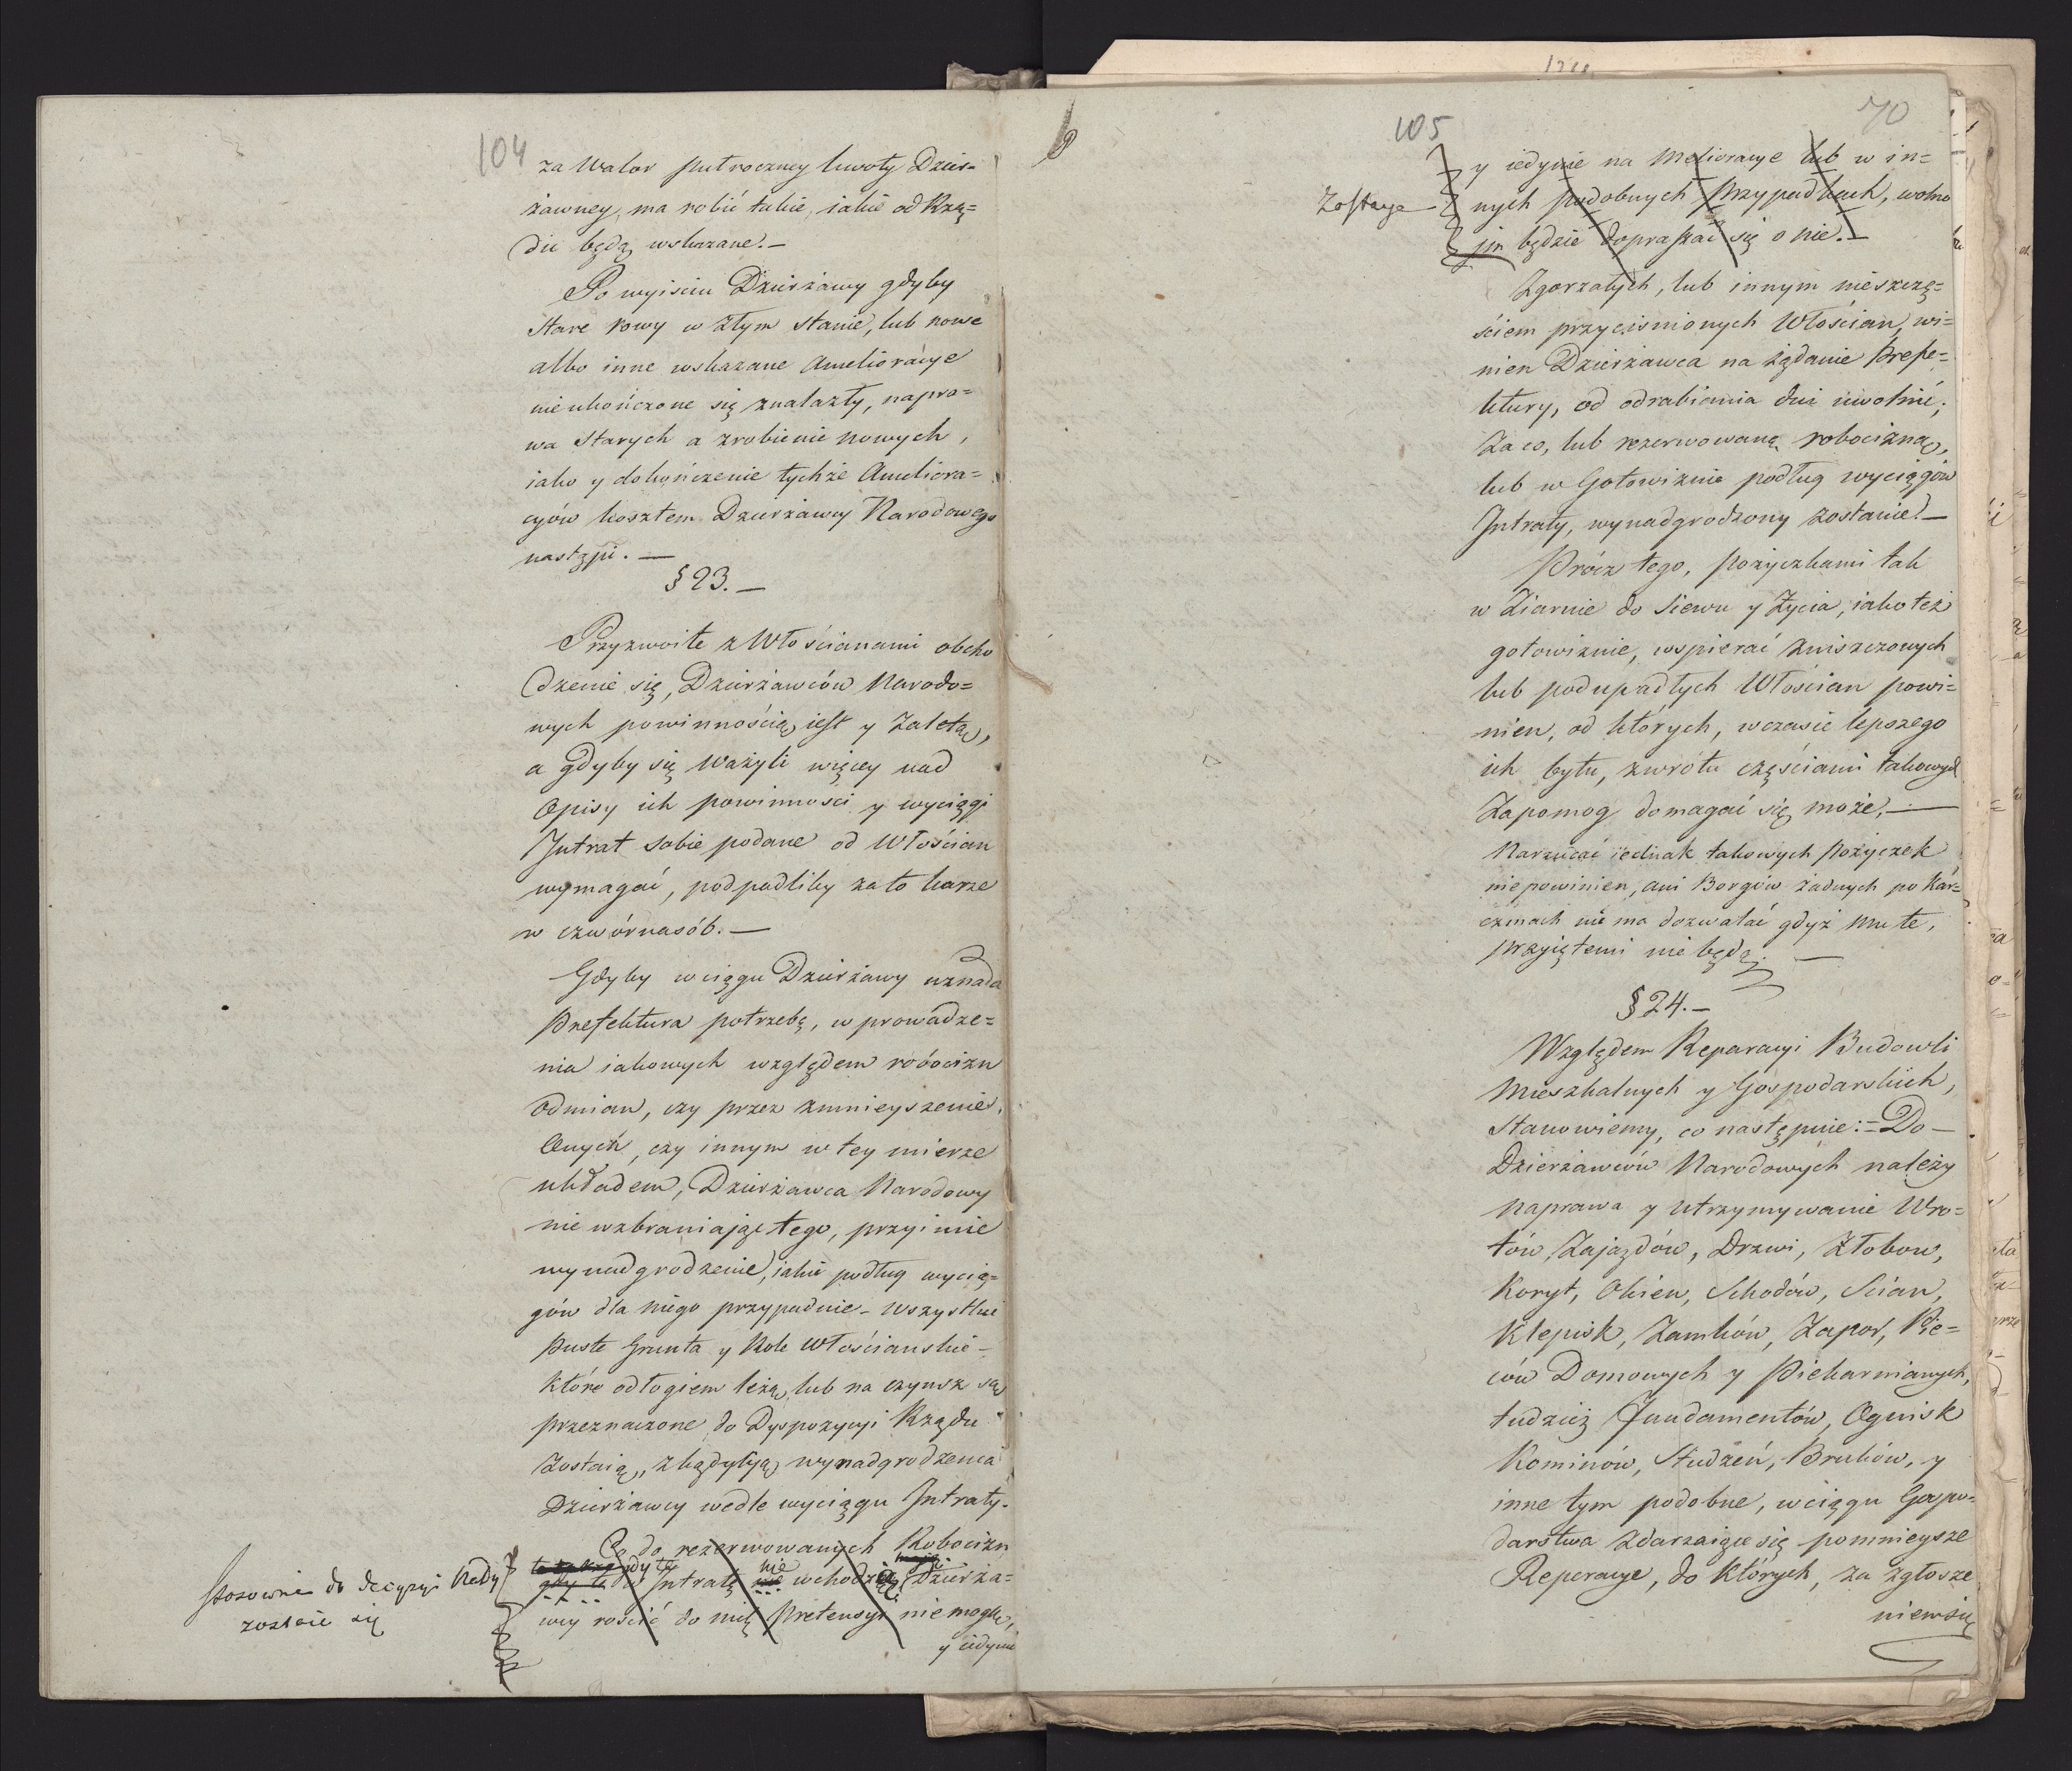 104
za Walor putroczney kwoty Dzier-
żawney, ma robić takie, iakie od Rzą=
du będą wskazane.—
Po wyiściu Dzierżawy gdyby
Stare rowy w złym stanie, lub nowe
albo inne wskazane Amelioracye
nieukończone się znalazły, napra=
wa Starych a zrobienie nowych,
iako y dokończenie tychże Ameliora=
cyów kosztem Dzierżawcy Narodowego
nastąpi.—
§ 23.—
Przyzwoite z Włościanami obcho
dzenie się, Dzierżawców Narodo=
wych powinnością iest y Zaletą,
a gdyby się ważyli więcey nad
Opisy ich powinności y wyciągi
Intrat sobie podane od Włościan
wymagać, podpadliby za to karze
w czwórnasób.—
Gdyby w ciągu Dzierżawy uznała
Prefektura potrzebę, w prowadze=
nia iakowych względem robocizn
Odmian, czy przez zmnieyszenie
Onych, czy innym w tey mierze
układem, Dzierżawca Narodowy
nie wzbraniaiąc tego, przyimie
wynadgrodzenie, iakie podług wycią=
gów dla niego przypadnie – wszystkie
Puste Grunta y Role Włościańskie –
które odłogiem leżą, lub na czynsz są
przeznaczone do Dyspozycyi Rządu
Zostaią, z bądytyą wynadgrodzenia
Dzierżawcy wedle wyciągu Intraty.
Co do rezerwowanych Robocizn
gdy te
nie
gdy te do Intraty nie wchodzą Dzierża=
wcy rościć do nich Pretensyi nie mogą,
y iedynie
Stosownie do decyzyi Rady
zostaie się
105
70
y iedynie na Melioracye lub w in=
Zostaye
nych podobnych Przypadkach, wolno
jm będzie dopraszać się o nie.—
Zgorzałych, lub innym nieszczę=
ściem przyciśnionych Włościan, wi=
nien Dzierżawca na żądanie Prefe=
ktury, od odrabiania dni uwolnić;
Za co, lub rezerwowaną robocizną,
lub w Gotowiznie podług wyciągów
Intraty, wynadgrodzony zostanie.—
Prócz tego, pożyczkami tak
w Ziarnie do Siewu y Życia, iako też
gotowiznie, wspierać zniszczonych
lub podupadłych Włościan powi=
nien, od których, w czasie lepszego
ich bytu, zwrótu częściami takowych
Zapomog domagać się może.—
Narzucać iednak takowych Pożyczek
nie powinien, ani Borgów żadnych po Kar=
czmach nie ma dozwalać gdyż mu te,
przyiętemi nie będą.—
§ 24.—
Względem Reparacyi Budowli
Mieszkalnych y Gospodarskich,
Stanowiemy, co następuie:= Do—
Dzierżawców Narodowych należy
Naprawa y utrzymywanie Wro=
tów, Zajazdów, Drzwi, Złobow,
Koryt, Okien, Schodów, Scian,
Klepisk, Zamków, Zapor, Pie=
ców Domowych y Piekarnianych,
tudzież Fundamentów, Ognisk
Kominów, Studzeń, Bruków, y
inne tym podobne, w ciągu Gospo=
darstwa zdarzaiące się pomnieysze
Reperacye, do których, za zgłosze
niem się